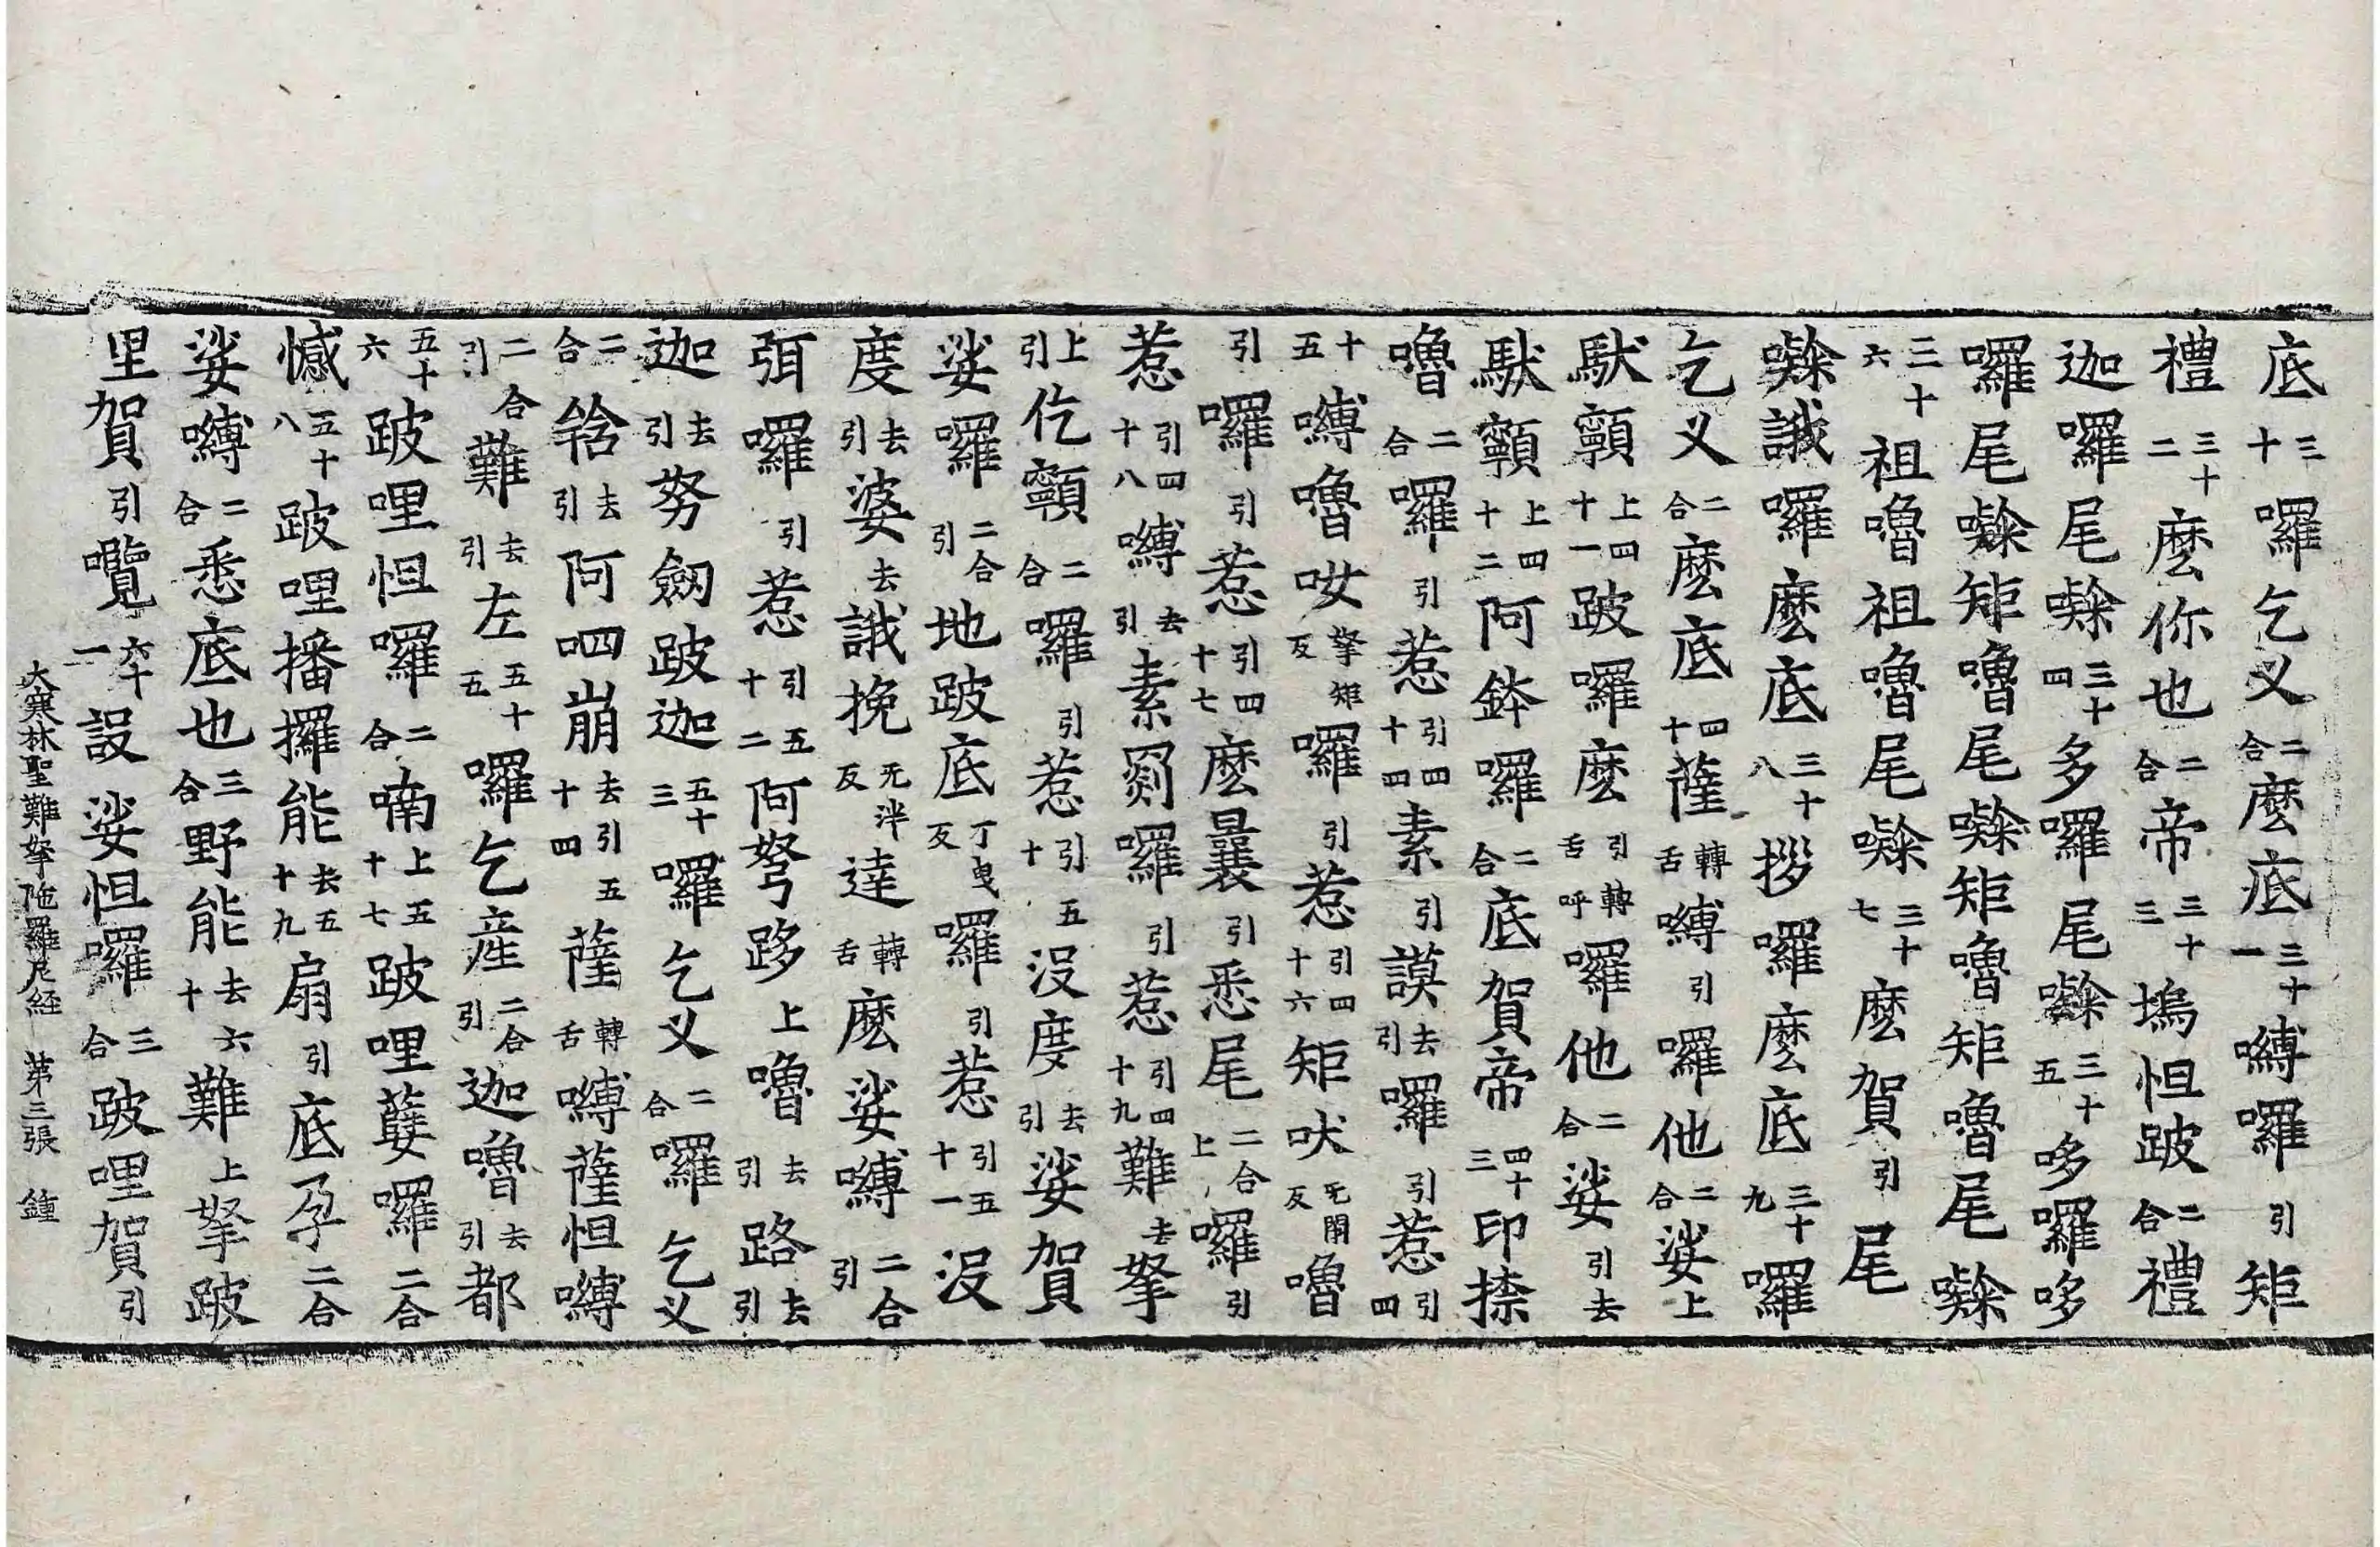 底三十囉乞叉二合麼底三十一嚩囉引矩
禮三十二麼你也二合帝三十三塢怛跛二合禮
迦囉尾㘑三十四多囉尾㘑三十五哆囉哆
囉尾㘑矩嚕尾㘑矩嚕矩嚕尾㘑
三十六祖嚕祖嚕尾㘑三十七麼賀引尾
㘑誐囉麼底三十八拶囉麼底三十九囉
乞叉二合麼底四十薩轉舌嚩引囉他二合娑上
馱顙上四十一跛囉麼引轉舌呼囉他二合娑引去
馱顙上四十二阿鉢囉二合底賀帝四十三印捺
嚕二合囉引惹引四十四素引謨去引囉引惹引四
十五嚩嚕呶拏矩反囉引惹引四十六矩吠旡開反嚕
引囉引惹引四十七麼曩引悉尾二合上囉引
惹引四十八嚩去引素囉引惹引四十九難去拏
上引仡顙二合囉引惹引五十沒度去引娑賀
娑囉二合引地跛底丁曳反囉引惹引五十一沒
度去引婆去誐挽旡泮反達轉舌麼娑嚩二合引
弭囉引惹引五十二阿努跢上嚕去引路去引
迦去引努劒跛迦五十三囉乞叉二合囉乞叉
二合給去引阿呬崩去引五十四薩轉舌嚩薩怛嚩
二合引難去引左五十五囉乞產二合引迦嚕去引都
五十六跛哩怛囉二合喃上五十七跛哩蘖囉二合
憾五十八跛哩播攞能去五十九扇引底孕二合
娑嚩二合悉底也三合野能去六十難上拏跛
里賀引㘕六十一設娑怛囉三合跛哩賀引
大寒林聖難拏陁羅尼経 第三張 鍾